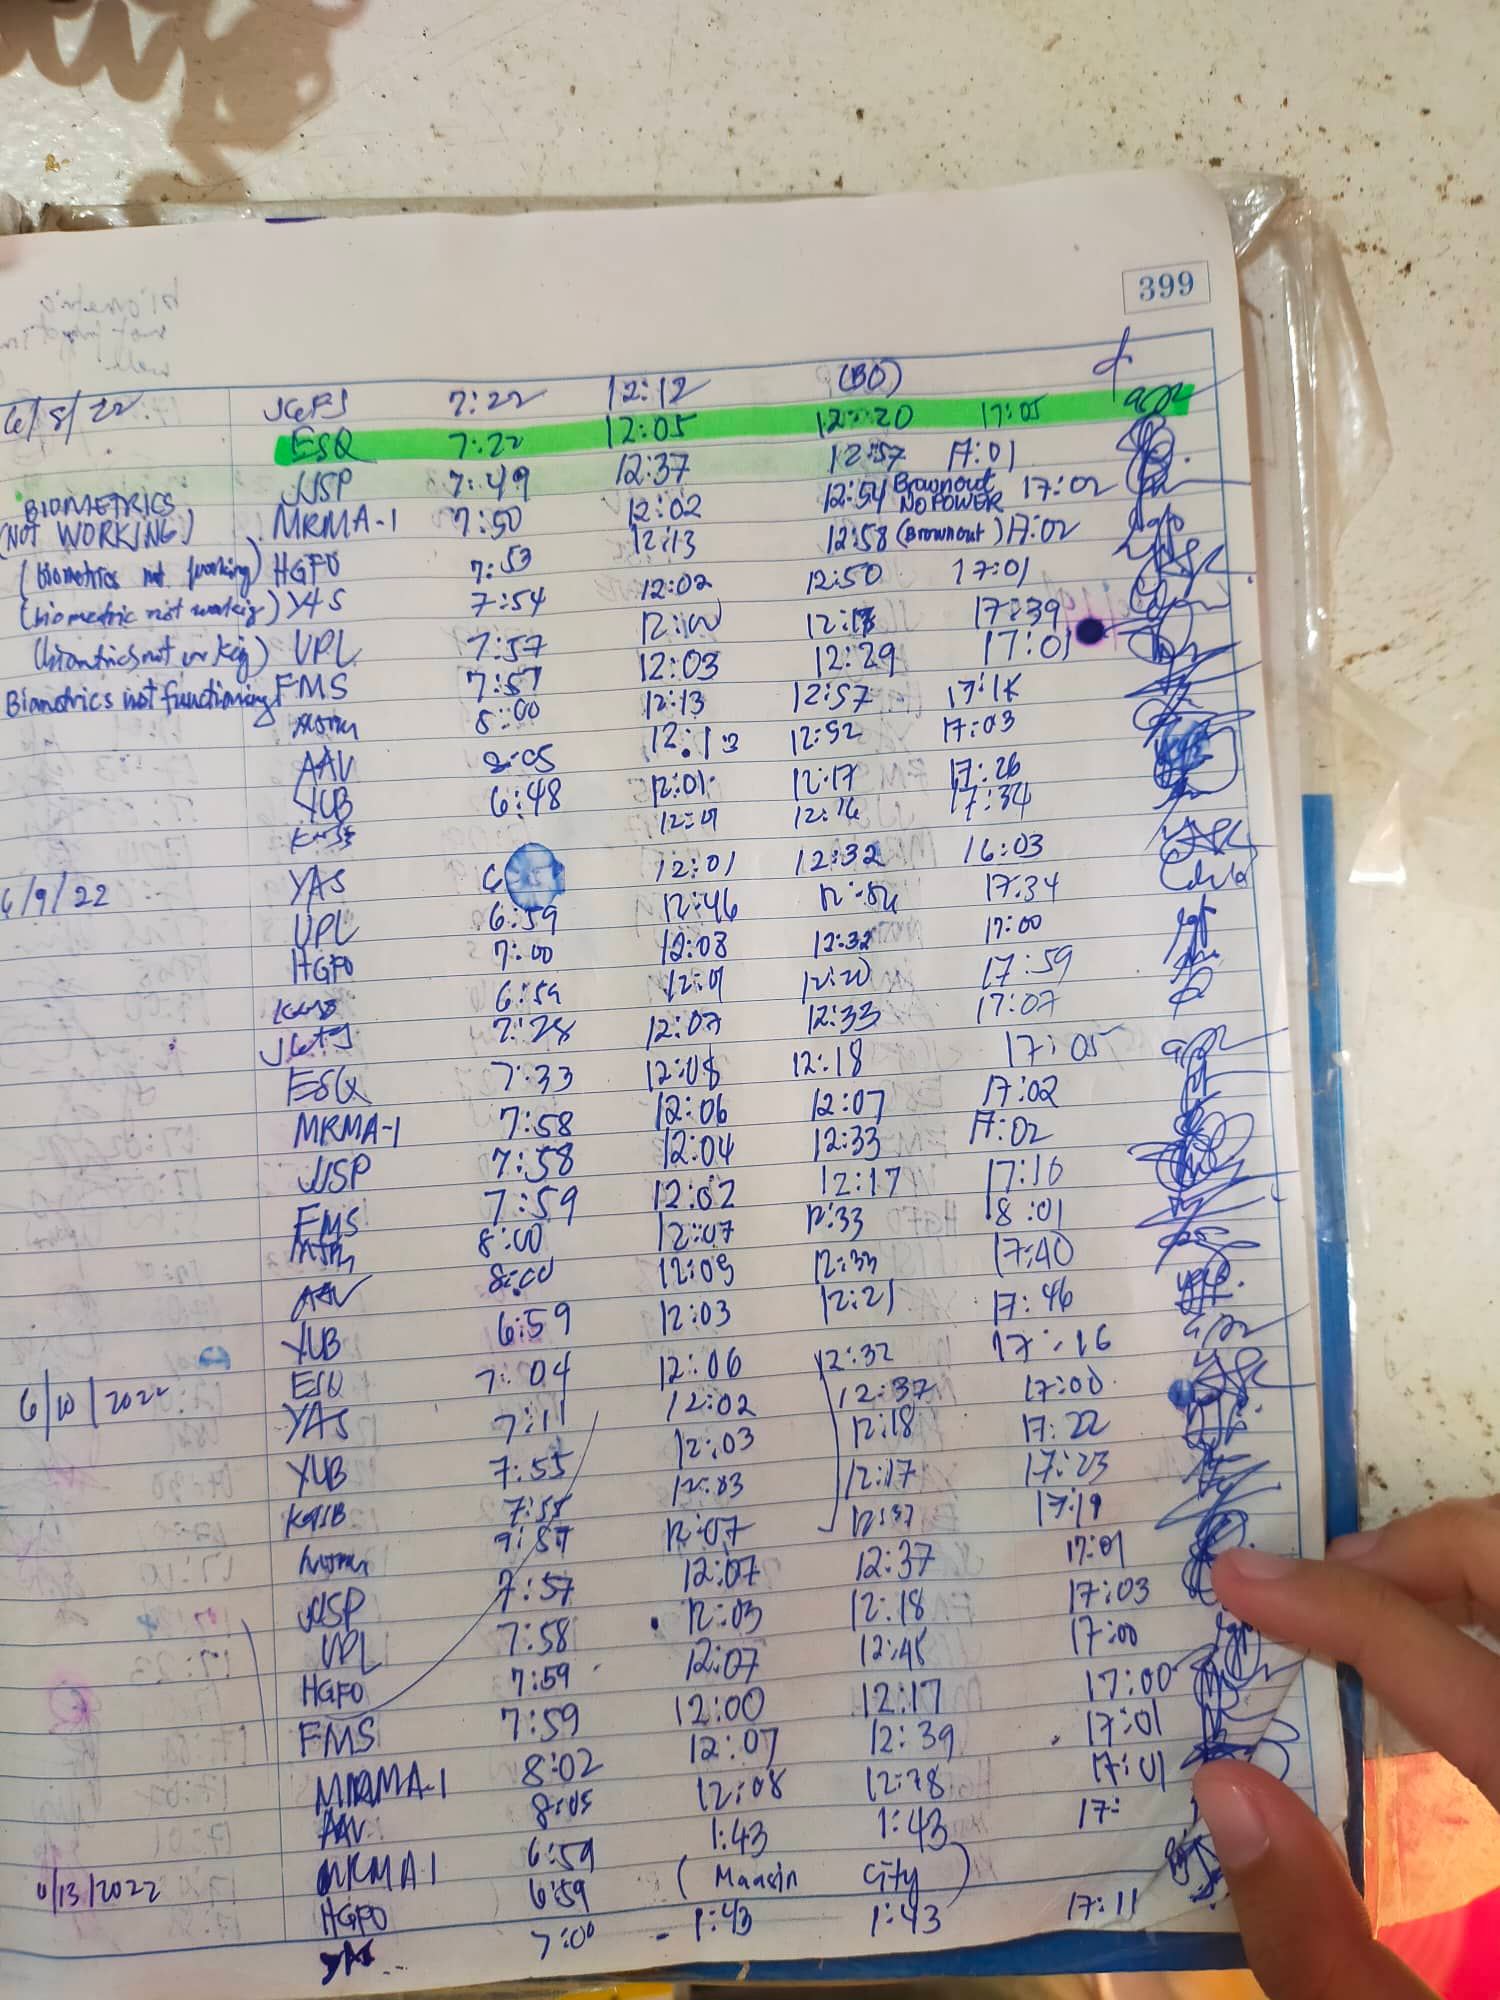 399
6/8/22 JGFJ 7:22 12:12 (BO)
ESQ 7:22 12:05 12:20 17:05
JJSP 7:49 12:37 12:57 17:01
BIOMETRICS (NOT WORKING) MRMA-1 7:50 12:02 12:54 Brownout NO POWER 17:02
(biometrics not working) HGFO 7:53 12:13 12:58 (Brownout) 17:02
(biometric not workig) YAS 7:54 12:02 12:50 17:01
UPL 7:57 17:39
Biometrics not functioning FMS 7:57 12:03 12:29 17:01
8:00 12:13 12:57
AAV 8:05 12:13 12:52 17:03
YUB 6:48 12:01 12:17 17:26
17:34
6/9/22 YAS 12:01 12:32 16:03
UPL 6:59 12:46 17:34
HGFO 7:00 12:08 12:32 17:00
6:59 17:59
JGFJ 7:28 12:07 12:33 17:07
ESQ 7:33 12:08 12:18 17:05
MRMA-1 7:58 12:06 12:07 17:02
JJSP 7:58 12:04 12:33 17:02
FMS 7:59 12:02 12:17 17:10
8:00 12:07 12:33 18:01
AAV 8:00 12:09 12:33 17:40
YUB 6:59 12:03 12:21 17:46
6/10/2022 ESQ 7:04 12:06 12:32 17:16
YAS 7:11 12:02 12:37 17:00
YUB 7:55 12:03 12:18 17:22
7:55 12:03 12:17 17:23
12:07 12:37 17:19
JJSP 7:57 12:07 12:37 17:01
UPL 7:58 12:03 12:18 17:03
HGFO 7:59 12:07 12:45 17:00
FMS 7:59 12:00 12:17 17:00
MRMA-1 8:02 12:07 12:39 17:01
AAV 8:05 12:08 17:01
6/13/2022 MRMA-1 6:59 1:43 1:43 17:
HGFO 6:59 (Maasin City)
7:00 1:43 1:43 17:11